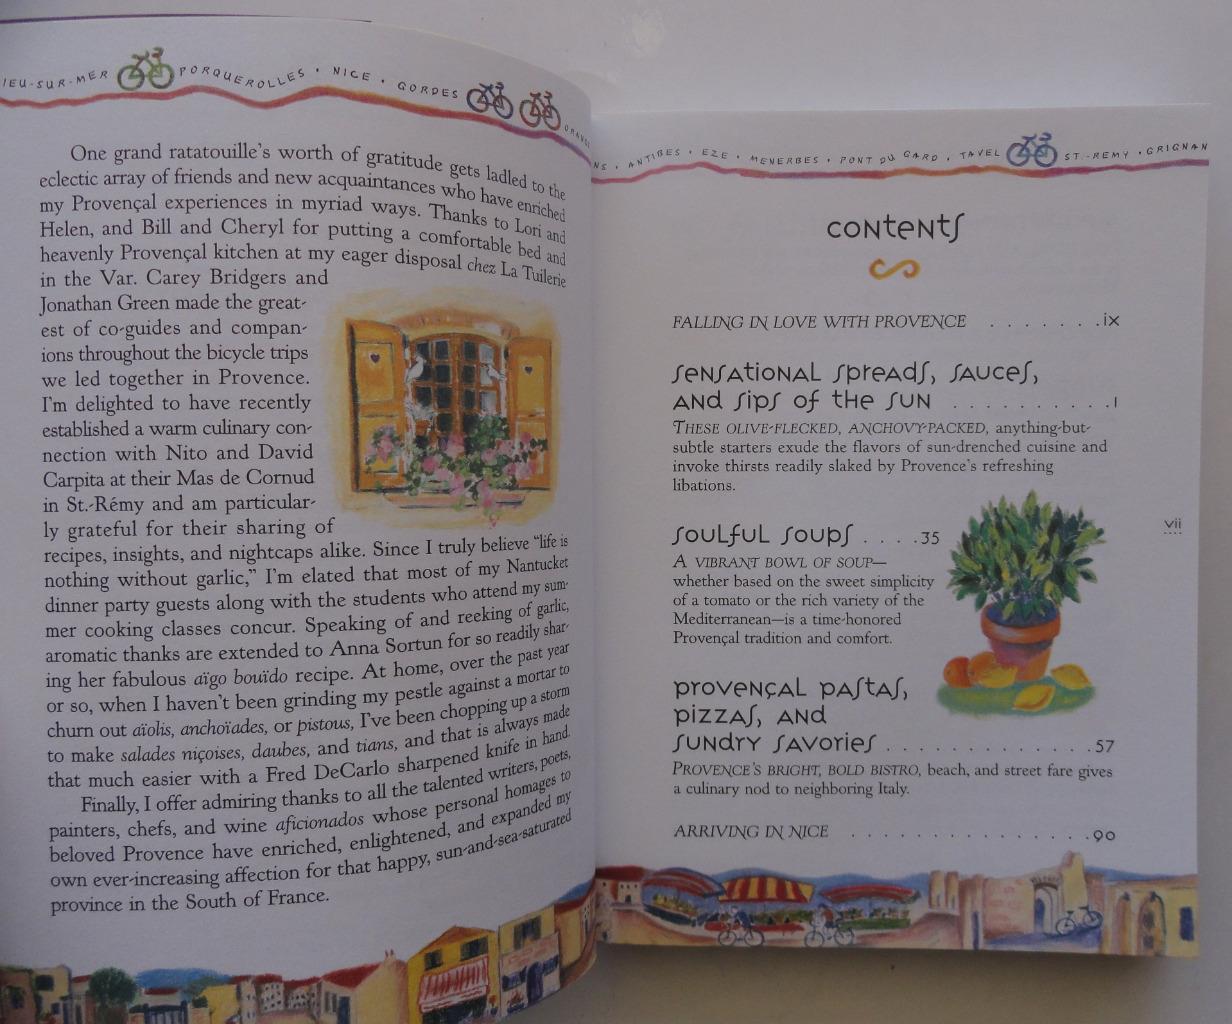 IEU-SUR-MER PORQUEROLLES · NICE · GORDES
One grand ratatouille's worth of gratitude gets ladled to the
eclectic array of friends and new acquaintances who have enriched
my Provençal experiences in myriad ways. Thanks to Lori and
Helen, and Bill and Cheryl for putting a comfortable bed and
heavenly Provençal kitchen at my eager disposal chez La Tuilerie
in the Var. Carey Bridgers and
Jonathan Green made the great-
est of co-guides and compan-
ions throughout the bicycle trips
we led together in Provence.
I'm delighted to have recently
established a warm culinary con-
nection with Nito and David
Carpita at their Mas de Cornud
in St.-Rémy and am particular-
ly grateful for their sharing of
recipes, insights, and nightcaps alike. Since I truly believe "life is
nothing without garlic," I'm elated that most of my Nantucket
dinner party guests along with the students who attend my sum-
mer cooking classes concur. Speaking of and reeking of garlic,
aromatic thanks are extended to Anna Sortun for so readily shar-
ing her fabulous aïgo bouïdo recipe. At home, over the past year
or so, when I haven't been grinding my pestle against a mortar to
churn out aïolis, anchoïades, or pistous, I've been chopping up a storm
to make salades niçoises, daubes, and tians, and that is always made
that much easier with a Fred DeCarlo sharpened knife in hand.
Finally, I offer admiring thanks to all the talented writers, poets,
painters, chefs, and wine aficionados whose personal homages to
beloved Provence have enriched, enlightened, and expanded my
own ever-increasing affection for that happy, sun-and-sea-saturated
province in the South of France.
NS · ANTIBES · EZE · MENERBES · PONT DU GARD · TAVEL ST.-REMY · GRIGNAN
contents
FALLING IN LOVE WITH PROVENCE . . . . . . . .ix
sensational spreads, sauces,
and sips of the sun . . . . . . . . . . .1
THESE OLIVE-FLECKED, ANCHOVY-PACKED, anything-but-
subtle starters exude the flavors of sun-drenched cuisine and
invoke thirsts readily slaked by Provence's refreshing
libations.
vii
soulful soups . . . .35
A VIBRANT BOWL OF SOUP—
whether based on the sweet simplicity
of a tomato or the rich variety of the
Mediterranean—is a time-honored
Provençal tradition and comfort.
provençal pastas,
pizzas, and
sundry savories . . . . . . . . . . . . . .57
PROVENCE'S BRIGHT, BOLD BISTRO, beach, and street fare gives
a culinary nod to neighboring Italy.
ARRIVING IN NICE . . . . . . . . . . . . . . . .90